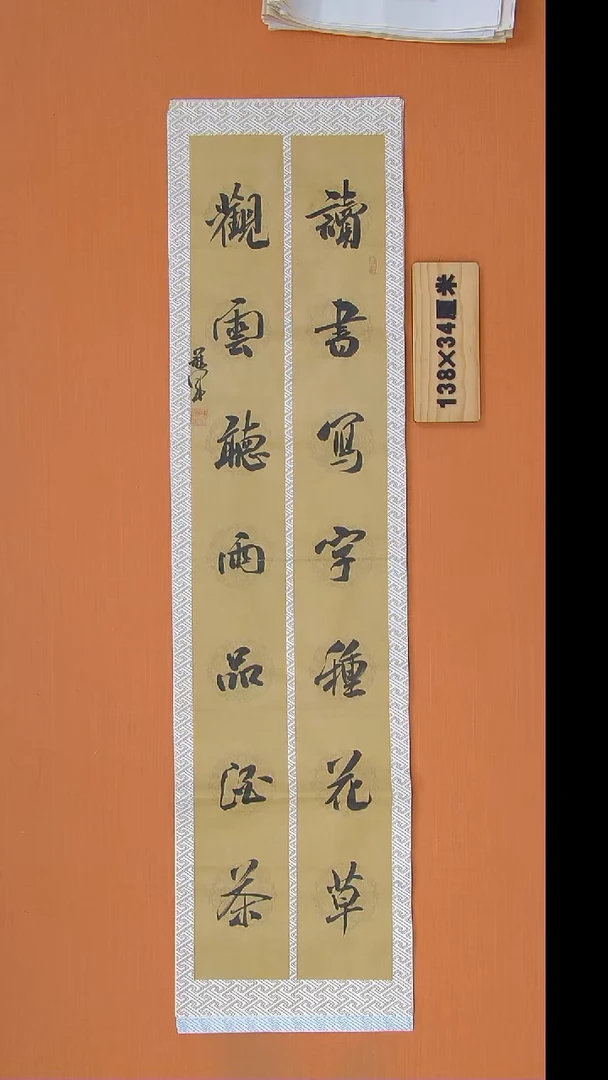 讀書寫字種花草
觀雲聽雨品酒茶
138×34厘米